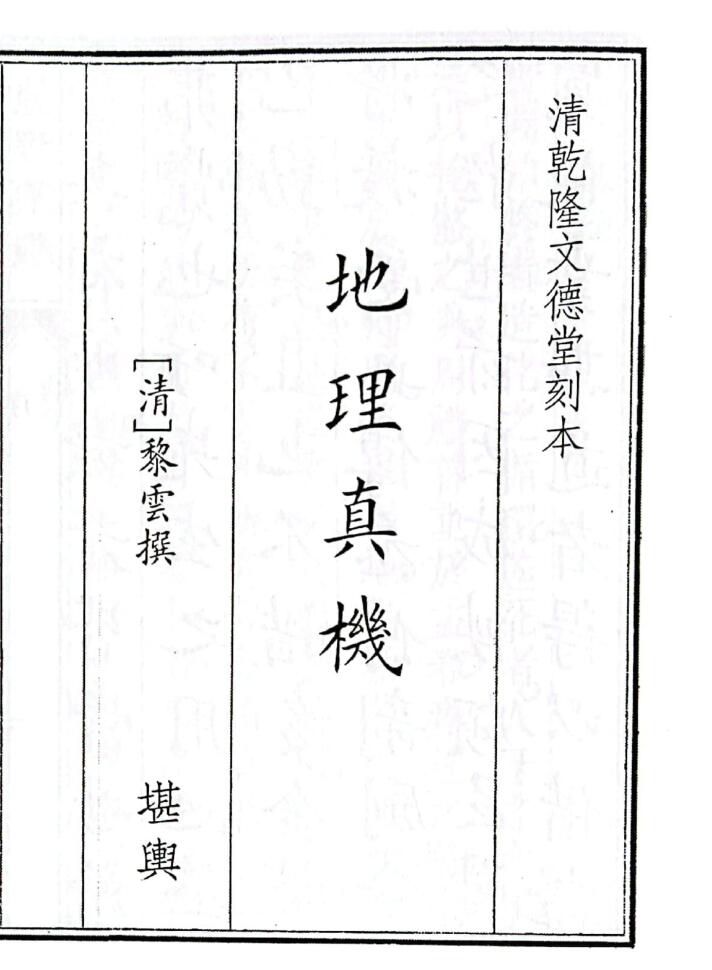 清乾隆文德堂刻本
地理真機
［清］黎雲撰
堪輿